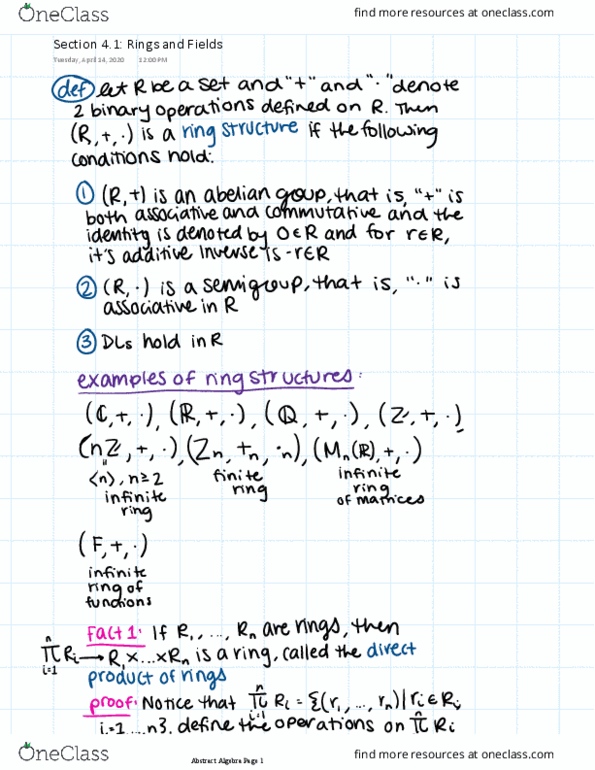 OneClass
find more resources at oneclass.com
Section 4.1: Rings and Fields
Tuesday, April 14, 2020 12:00 PM
def let R be a set and "+" and "·" denote
2 binary operations defined on R. Then
(R, +, ·) is a ring structure if the following
conditions hold:
① (R, +) is an abelian group, that is, "+" is
both associative and commutative and the
identity is denoted by 0∈R and for r∈R,
it's additive inverse is -r∈R
② (R, ·) is a semigroup, that is, "·" is
associative in R
③ DLs hold in R
examples of ring structures:
(ℂ, +, ·), (ℝ, +, ·), (ℚ, +, ·), (ℤ, +, ·),
(nℤ, +, ·), (ℤn, +n, ·n), (Mn(ℝ), +, ·)
" 
⟨n⟩, n≥2 finite infinite
infinite ring ring
ring of matrices
(F, +, ·)
infinite
ring of
functions
Fact 1: If R₁, ..., Rn are rings, then
n
π Ri → R₁ x...x Rn is a ring, called the direct
i=1
product of rings
proof: Notice that n π i=1 Ri = {(r₁, ..., rn) | ri ∈ Ri,
i=1...n}. define the operations on n π Ri
OneClass
Abstract Algebra Page 1
find more resources at oneclass.com